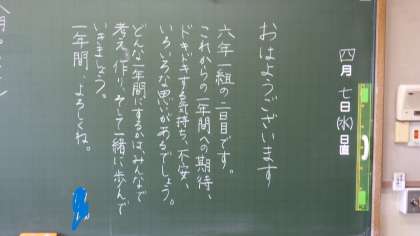 四月七日(水)日直
おはようございます
六年一組の二日目です。
これからの一年間への期待、
ドキドキする気持ち、不安、
いろいろな思いがあるでしょう。
どんな一年間にするかは、みんなで
考え、作り、そして一緒に歩んで
いきましょう。
一年間、よろしくね。